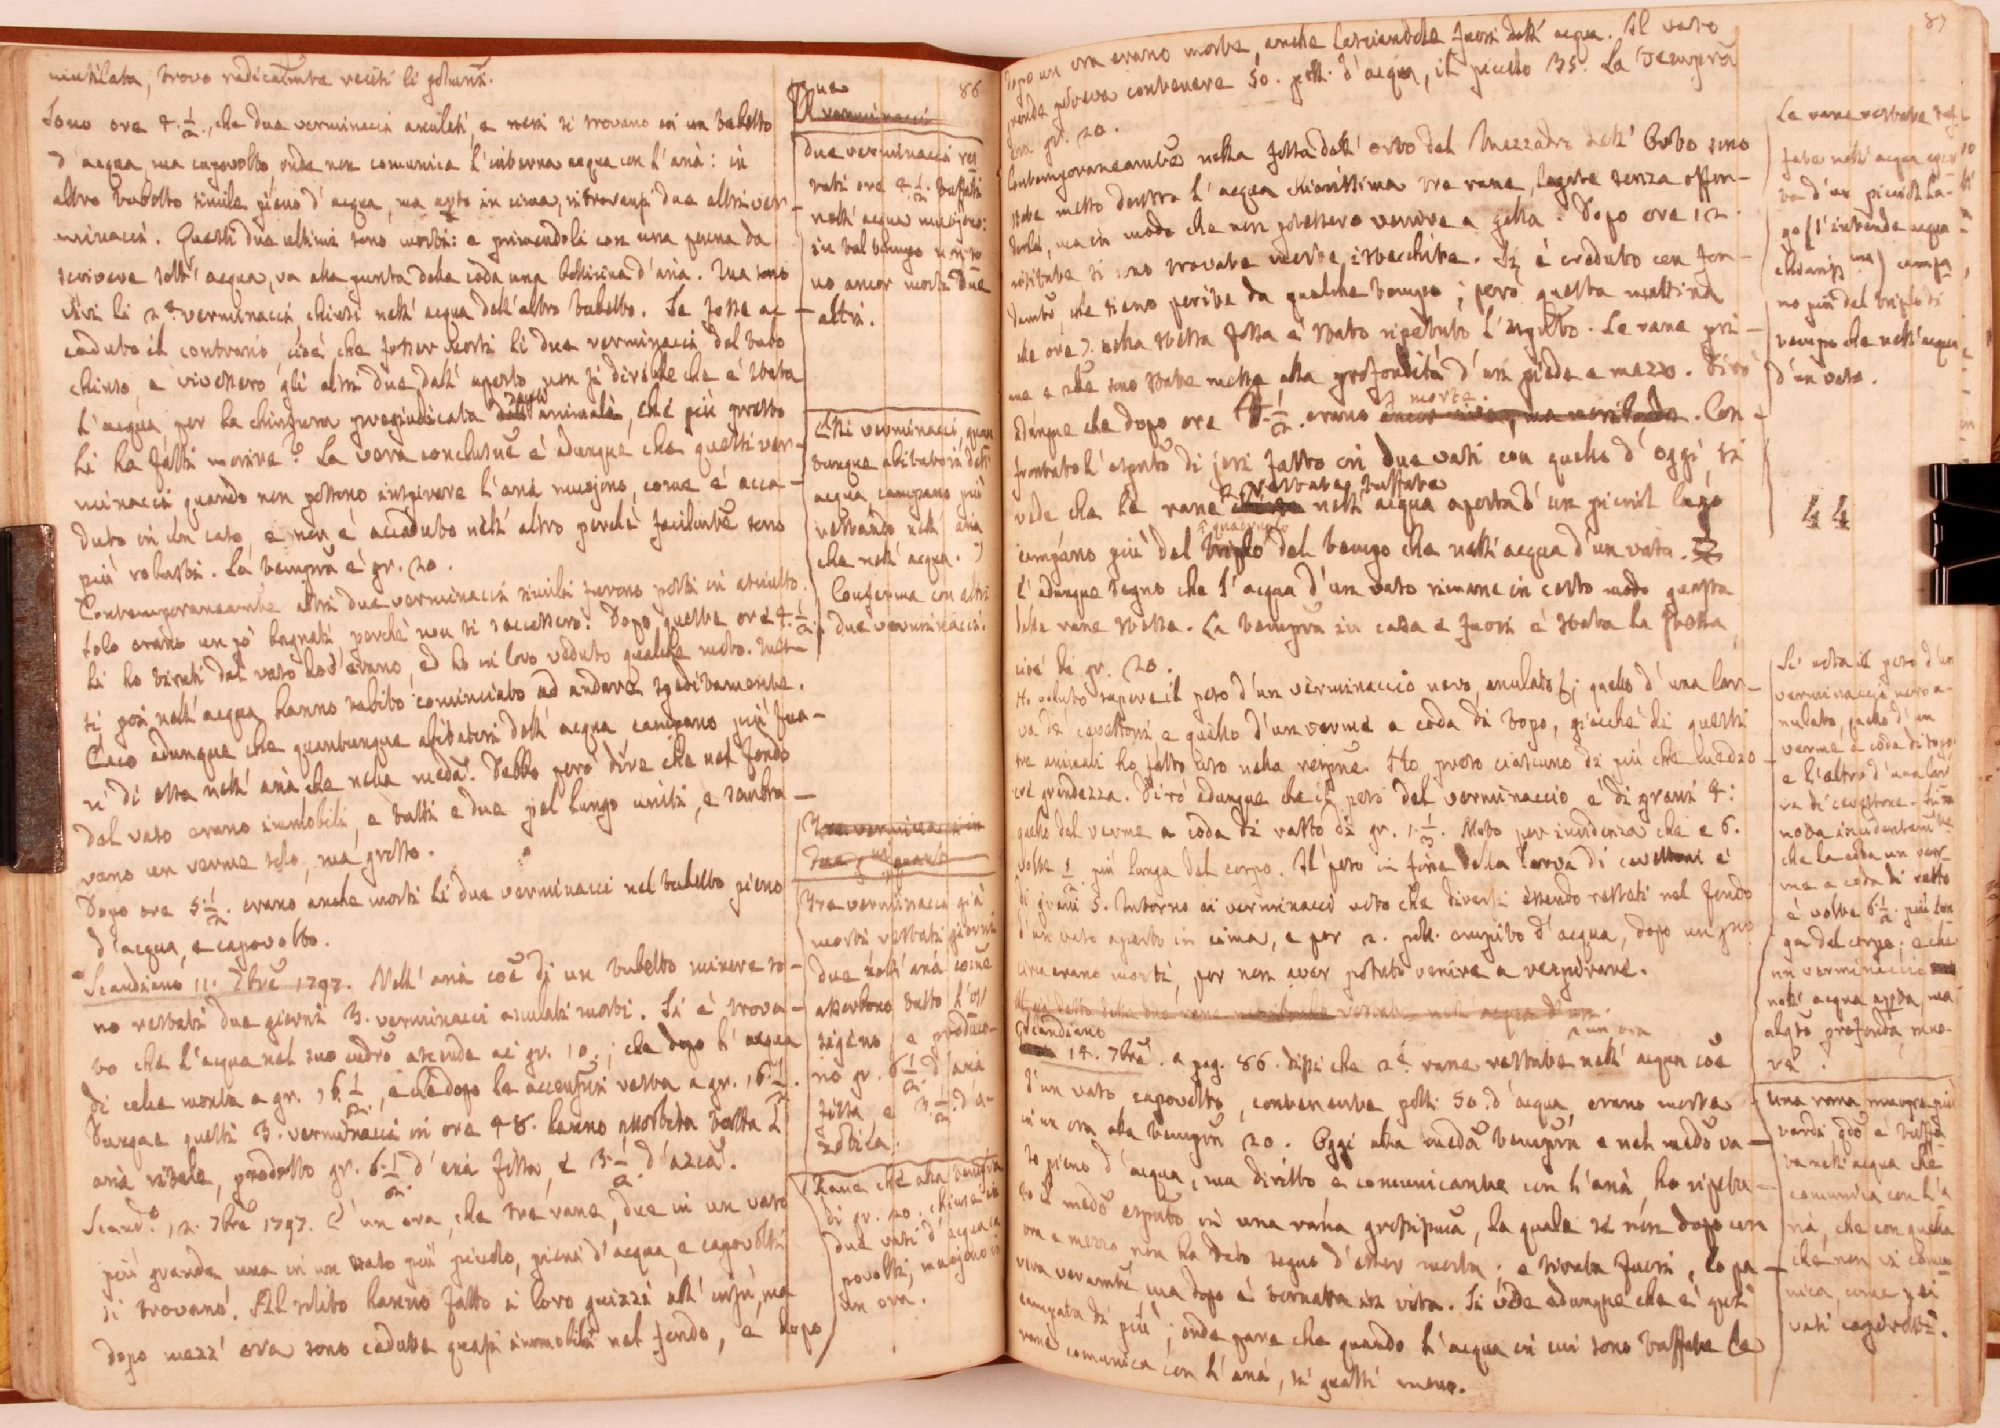 mutilata, trovo
86
Sono ore 4. 1/2., che due verminacci anulati, e neri si trovano in un tubetto
d'acqua, ma capovolto, onde non comunica l'interna acqua con l'aria: in
altro tubetto simile pieno d'acqua, ma apto in cima, ritrovansi due altri ver-
minacci. Questi due ultimi sono morti: e primendoli con una penna da
scrivere sott'acqua, va alla punta della coda una bollicina d'aria. Ma sono
vivi li 2. verminacci chiusi nell'acqua dell'altro tubetto. Se fosse ac-
caduto il contrario, cioè che fosser morti li due verminacci del tubo
chiuso, e vivessero gli altri due dell'aperto, non si direbbe che è stata
l'acqua per la chiusura pregiudicata animali, che più presto
li ha fatti morire? La vera conclusne è adunque che questi ver-
minacci quando non possono inspirare l'aria muojono, come è acca-
duto in un caso, e non è accaduto nell'altro perchè facilmte sono
più robusti. La tempra è gr. 20.
Contemporaneamte altri due verminacci simili furono posti in asciutto.
Solo erano un po' bagnati perchè non si seccassero. Dopo queste ore 4. 1/2.
li ho tirati dal vaso dov'erano, ed ho in loro veduto qualche moto. Mes-
si poi nell'acqua hanno subito cominciato ad andare speditamente.
Ecco adunque che quantunque abitatori dell'acqua campano più fuo-
ri di essa nell'aria che nella meda. Debbo però dire che nel fondo
del vaso erano immobili, e tutti e due pel lungo uniti, e sembra-
vano un verme solo, ma grosso.
Dopo ore 5. 1/2. erano anche morti li due verminacci nel tubetto pieno
d'acqua, e capovolto.
Scandiano 11. 7bre 1797. Nell'aria coe di un tubetto minore so-
no restati due giorni 3. verminacci anulati morti. Si è trova-
to che l'acqua nel suo cedro ascende ai gr. 10.; che dopo l'acqua
di calce monta a gr. 16. 1/2., e che dopo le accensioni resta a gr. 16. 1/2.
Dunque questi 3. verminacci in ore 48. hanno assorbita tutta l'
aria vitale, prodotto gr. 6. 1/2. d'aria fissa, e 3. 1/2. d'azca.
Scando. 12. 7bre 1797. È un ora, che tre rane, due in un vaso
più grande, una in un vaso più piccolo, pieni d'acqua, e capovolti
si trovano. Al solito hanno fatto i loro guizzi all'insù, ma
dopo mezz'ora sono cadute quasi immobili nel fondo, e dopo
Due
verminacci
Due verminacci res
tati ore 4. 1/2. tuffati
nell'acqua muojono:
in tal tempo non so
no ancor morti due
altri.
Essi verminacci, quan
tunque abitatori dell'
acqua campano più
restando nell'aria
che nell'acqua.
Conferma con altri
due verminacci.
Tre verminacci in
due
Tre verminacci già
morti restati giorni
due nell'aria come
assorbono tutto l'oss
sigeno e produco-
no gr. 6 1/2. d'aria
fissa e 3. 1/2. d'a-
zotica.
Rane che alla tempra
di gr. 20. chiuse in
due vasi d'acqua ca
povolti, muojono in
un ora.
87
dopo un ora erano morte, anche lasciandole fuori dell'acqua. Il vaso
grande poteva contenere 50. poll. d'acqua, il piccolo 35. La tempra
era gr. 20.
Contemporaneamte nella fossa dell'orto del Mezzadro dell'Orto sono
state messe dentro l'acqua chiarissima tre rane, legate senza offen-
derle, ma in modo che non potessero venire a galla. Dopo ore 12.
visitate si sono trovate morte, istecchite. Si è creduto con fon-
damto che siano perite da qualche tempo; però questa mattina
che ore 7. nella stessa fossa è stato ripetuto l'espto. Le rane pri-
me e 2de sono state messe alla profondità d'un piede e mezzo. Dirò
adunque che dopo ore 4. 1/2. erano morte. Con-
frontato l'espto di jeri fatto in due vasi con quello d'oggi, si
vede che le rane restate tuffate nell'acqua aperta d'un picciol lago
campano più del quadruplo triplo del tempo che nell'acqua d'un vaso.
È adunque segno che l'acqua d'un vaso rimane in certo modo guasta
dalle rane stesse. La tempra in casa e fuori è stata la stessa,
cioè li gr. 20.
Ho voluto sapere il peso d'un verminaccio nero, anulato; quello d'una lar-
va di cavettoni e quello d'un verme a coda di topo, giacchè di questi
tre animali ho fatto uso nella respne. Ho preso ciascuno di più che media
cre grandezza. Dirò adunque che il peso del verminaccio è di grani 4:
quello del verme a coda di ratto di gr. 1. 1/3. Noto per incidenza che è 6.
volte 1/2 più lunga del corpo. Il peso in fine della larva di cavettoni è
di grani 5. Intorno ai verminacci noto che diversi essendo restati nel fondo
d'un vaso aperto in cima, e per 2. poll. empito d'acqua, dopo un gno
circa erano morti, per non aver potuto venire a respirare.
Scandiano
14. 7bre. a pag. 86. dissi che 2e. rane restate un ora nell'acqua coe
d'un vaso capovolto, contenente poll. 50. d'acqua, erano morte
in un ora alla tempra 20. Oggi alla meda tempra e nel medo va-
so pieno d'acqua, ma diritto, e comunicante con l'aria, ho ripetu-
to il medo espto in una rana grossissima, la quale se non dopo un
ora e mezzo non ha dato segno d'esser morta: e tirata fuori, lo pa-
reva veramte ma dopo è tornata in vita. Si vede adunque che è quasi
campata di più; onde pare che quando l'acqua in cui sono tuffate le
rane comunica con l'aria, si guasti meno.
Le rane restate tuf
fate nell'acqua aper
ta d'un picciol la-
go (s'intende acqua
chiarissma) campa
no più del triplo di
tempo che nell'acqua
d'un vaso.
44
Si nota il peso d'un
verminaccio nero a-
nulato, quello d'un
verme a coda di topo,
e l'altro d'una lar
va di cavettone. Si
nota incidentemte
che la coda un ver-
me a coda di ratto
è volte 6 1/2. più lun
ga del corpo; e che
un verminaccio
nell'acqua apta, ma
alqto profonda, muo-
re.
Una rana muore più
tardi qdo è tuffa
ta nell'acqua che
comunica con l'a
ria, che con quella
che non vi comu
nica, come nei
vasi capovolti.